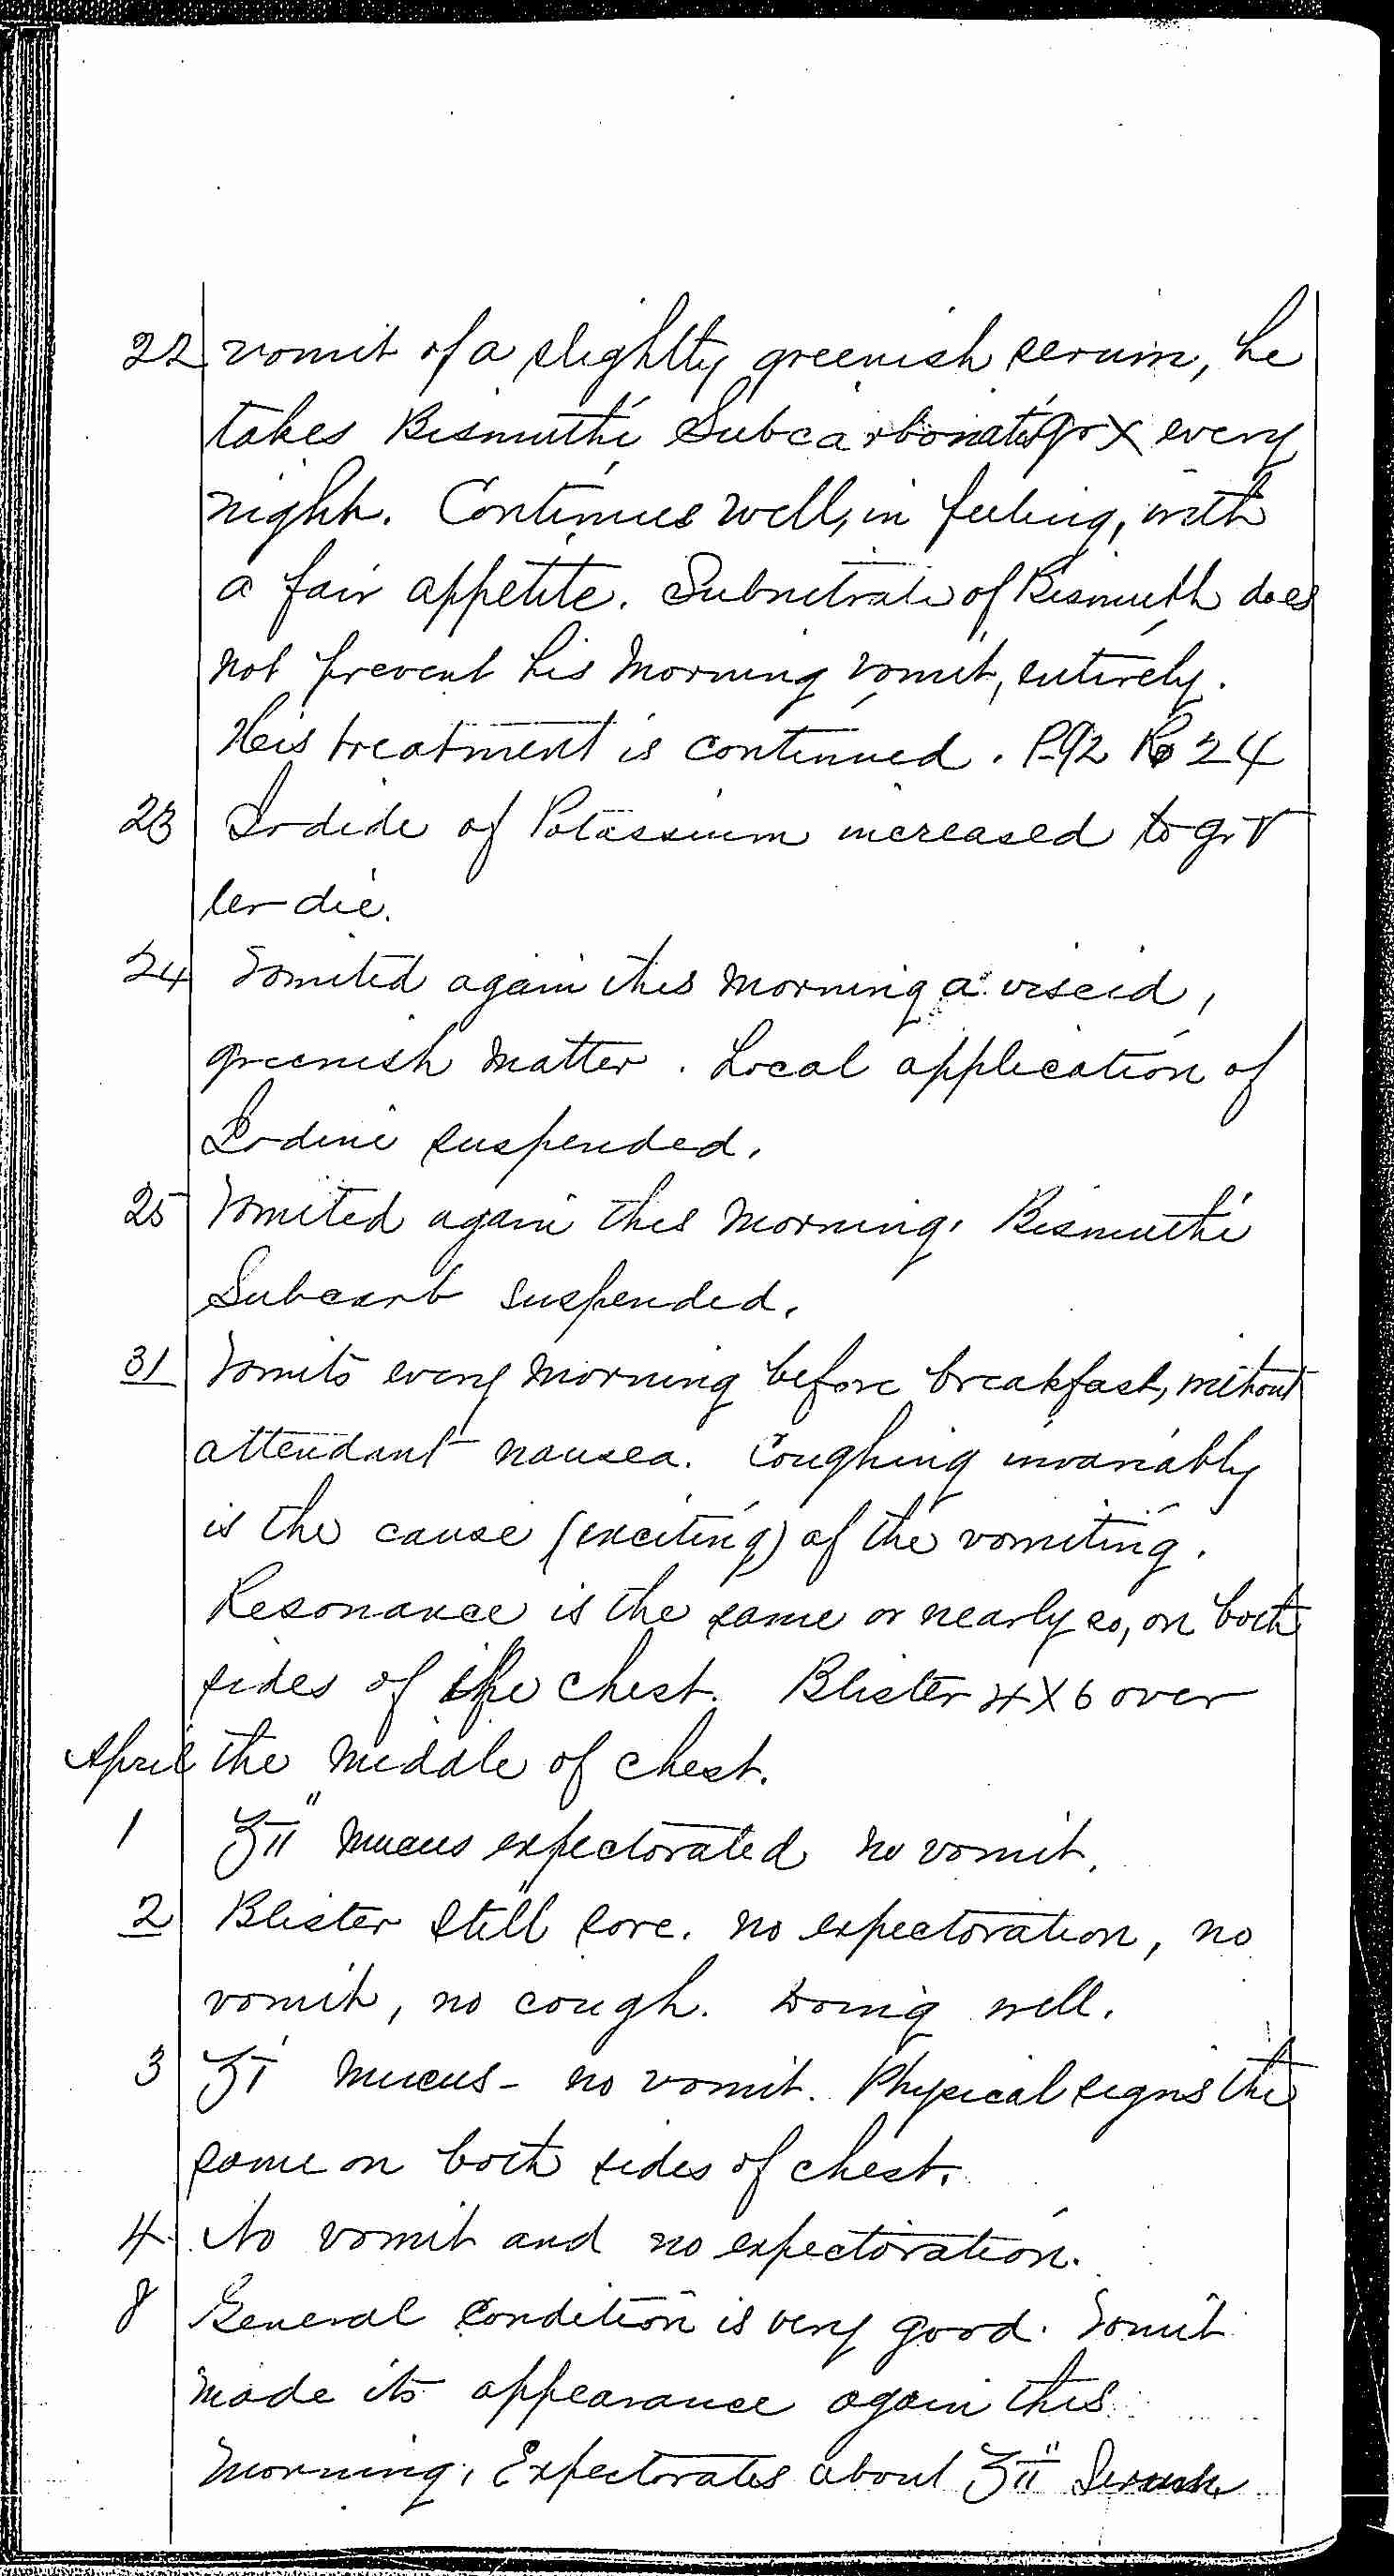 22 vomit of a slightly greenish serum, he
takes Bismuthi Subcarbonatis gr X every
night. Continues well, in feeling, with
a fair appetite. Subnitrate of Bismuth does
not prevent his morning vomit, entirely.
His treatment is continued. P92 R 24
23 Iodide of Potassium increased to gr V
ter die.
24 Vomited again this morning a viscid,
greenish matter. Local application of
Iodine suspended.
25 Vomited again this morning. Bismuthi
Subcarb suspended.
31 Vomits every morning before breakfast, without
attendant nausea. Coughing invariably
is the cause (exciting) of the vomiting.
Resonance is the same or nearly so, on both
sides of the chest. Blister 4X6 over
April the middle of chest.
1 ʒii mucus expectorated no vomit.
2 Blister still sore. no expectoration, no
vomit, no cough. Doing well.
3 ʒi mucus - no vomit. Physical signs the
same on both sides of chest.
4 No vomit and no expectoration.
8 General condition is very good. Vomit
made its appearance again this
morning. Expectorates about ʒii